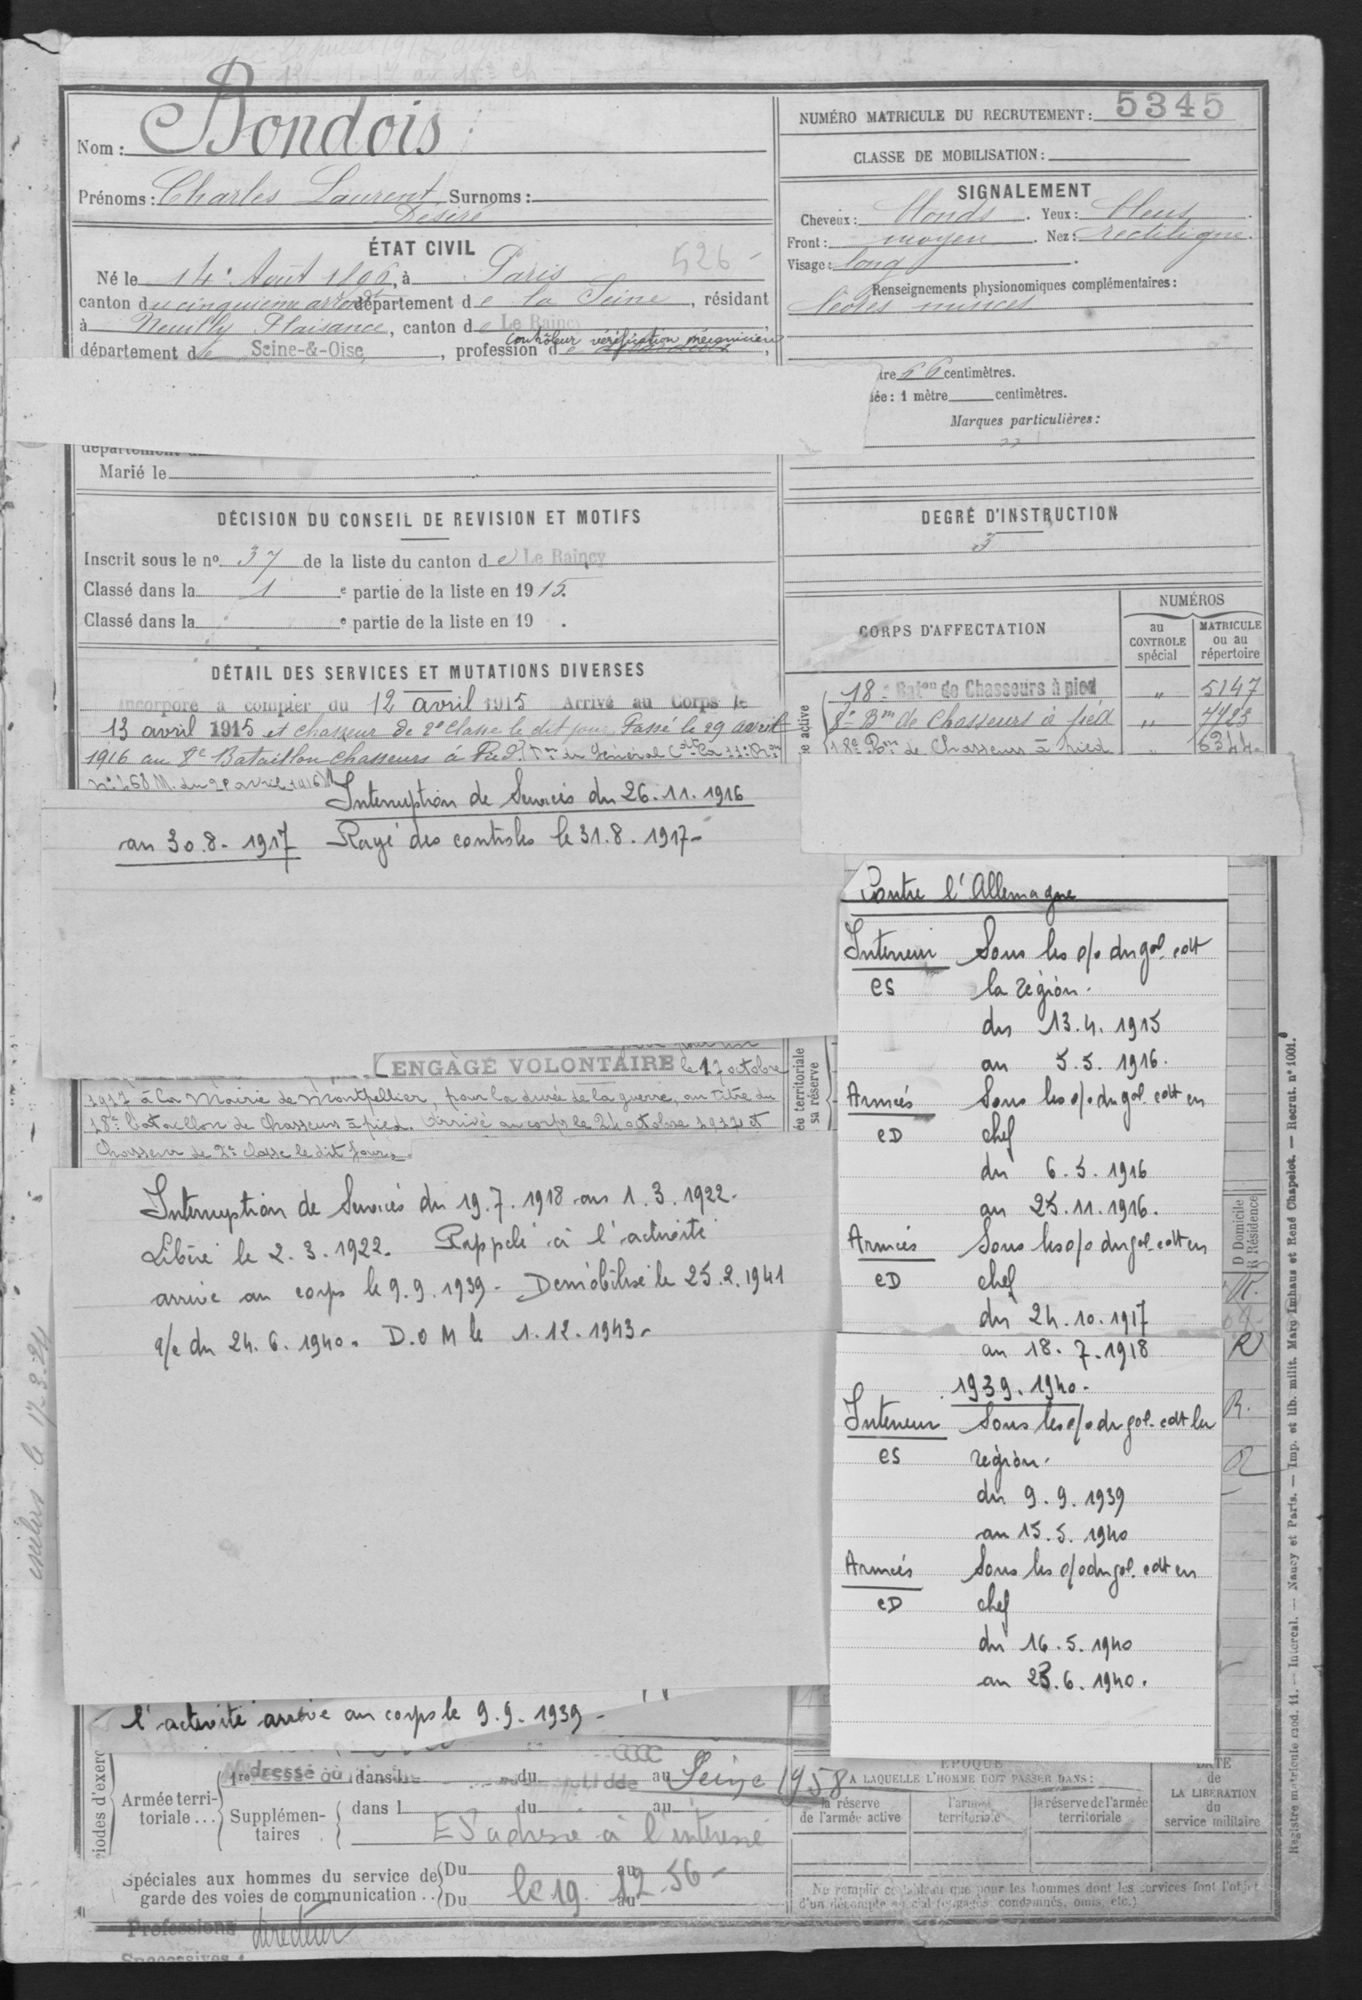 Nom : Bondois
Prénoms : Charles Laurent Surnoms :
Désiré
ÉTAT CIVIL
526
Né le 14 Août 1896, à Paris
canton du cinquième arrondt département de la Seine, résidant
à Neuilly Plaisance, canton de Le Raincy
contrôleur vérification mécanicien
département de Seine-&-Oise, profession de
Marié le
DÉCISION DU CONSEIL DE REVISION ET MOTIFS
Inscrit sous le no 37 de la liste du canton de Le Raincy
Classé dans la 1 e partie de la liste en 1915.
Classé dans la e partie de la liste en 19 .
DÉTAIL DES SERVICES ET MUTATIONS DIVERSES
Incorporé à compter du 12 avril 1915 Arrivé au Corps le
13 avril 1915 et chasseur de 2e classe le dit jour Passé le 29 avril
1916 au 8e Bataillon chasseurs à Pied.
Interruption de Services du 26.11.1916
au 30.8.1917 Rayé des contrôles le 31.8.1917-
ENGAGÉ VOLONTAIRE le 17 octobre
1917 à la Mairie de Montpellier, pour la durée de la guerre, au titre du
18e bataillon de Chasseurs à pied. Arrivé au corps le 24 octobre 1917 et
Chasseur de 2e classe le dit jour.
Interruption de Services du 19.7.1918 au 1.3.1922-
Libéré le 2.3.1922. Rappelé à l'activité
arrivé au corps le 9.9.1939- Démobilisé le 25.2.1941
a/c du 24.6.1940. D.O M le 1.12.1943-
l'activité arrivé au corps le 9.9.1939-
Armée terri-
toriale...
1re dans l du au Seine 1958
Supplémen-
taires
dans l du au
ES adressé à l'intéressé
Spéciales aux hommes du service de
garde des voies de communication..
Du au
Du au
le 19 12-56-
Professions directeur
Successives :
NUMÉRO MATRICULE DU RECRUTEMENT : 5345
CLASSE DE MOBILISATION :
SIGNALEMENT
Cheveux : blonds. Yeux : bleus.
Front : moyen. Nez : rectiligne.
Visage : long.
Renseignements physionomiques complémentaires :
lèvres minces
tre 66 centimètres.
ée : 1 mètre centimètres.
Marques particulières :
DEGRÉ D'INSTRUCTION
3
CORPS D'AFFECTATION
NUMÉROS
au CONTROLE spécial
MATRICULE ou au répertoire
e active
18e Baton de Chasseurs à pied " 5147
8e Bon de Chasseurs à pied " 7723
18e Bon de Chasseurs à pied " 6344
Contre l'Allemagne
Intérieur Sous les o/o du gal. cdt
CS la région.
du 13.4.1915
au 5.5.1916.
Armées Sous les o/o du gal. cdt en
CD chef
du 6.5.1916
au 25.11.1916.
Armées Sous les o/o du gal. cdt en
CD chef
du 24.10.1917
au 18.7.1918
1939.1940-
Intérieur Sous les o/o du gal. cdt la
CS région.
du 9.9.1939
au 15.5.1940
Armées Sous les o/o du gal. cdt en
CD chef
du 16.5.1940
au 23.6.1940.
ée territoriale
sa réserve
D Domicile
R Résidence
R.
R
R.
R
ÉPOQUE
A LAQUELLE L'HOMME DOIT PASSER DANS :
la réserve de l'armée active
l'armée territoriale
la réserve de l'armée territoriale
DATE
de
LA LIBÉRATION
du
service militaire
Ne remplir ce tableau que pour les hommes dont les services font l'objet
d'un décompte spécial (engagés, condamnés, omis, etc.)
Registre matricule mod. 11. — Intercal. — Nancy et Paris. — Imp. et lib. milit. Marc Imhaus et René Chapelot. — Recrut. no 1001.